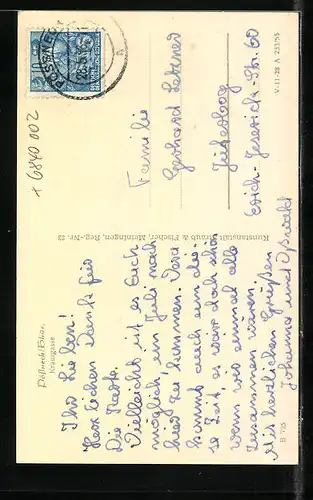 Pößneck/Thür.
Krautgasse
Ihr Lieben!
Herzlichen Dank für
Die Karte.
Vielleicht ist es Euch
möglich, im Juli nach
hier zu kommen.
kommt auch um die-
se Zeit es wäre doch schön
wenn wir einmal alle
zusammen wären.
Mit herzlichen Grüßen
Johanna und
B 795
Kunstanstalt Straub & Fischer, Meiningen, Reg.-Nr. 22
+6840 002
Familie
Gerhard
Jüterbog
Erich-Jeserich-Str. 60
V-11-28 A 233/55